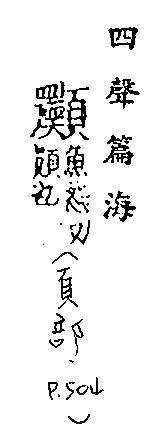 四聲篇海
魚怨切
(頁部 P.504)